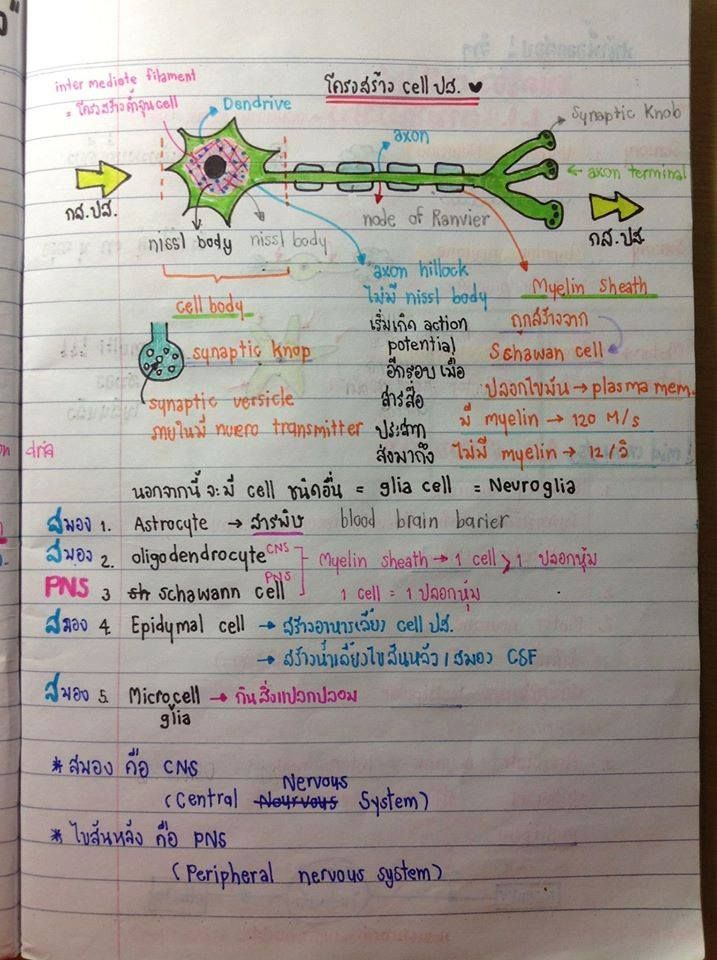 โครงสร้าง cell ปส. ♥
inter mediate filament
= โครงสร้างค้ำจุน cell
Dendrive
axon
Synaptic Knob
axon terminal
กส.ปส.
กส.ปส.
nissl body
nissl body
node of Ranvier
cell body
axon hillock
ไม่มี nissl body
เริ่มเกิด action
potential
อีกรอบ เมื่อ
สารสื่อ
ประสาท
ส่งมาถึง
Myelin Sheath
ถูกสร้างจาก
Schawan cell
ปลอกไขมัน → plasma mem.
มี myelin → 120 M/s
ไม่มี myelin → 12/วิ
synaptic knop
synaptic versicle
ภายในมี nuero transmitter
นอกจากนี้ จะมี cell ชนิดอื่น = glia cell = Neuroglia
สมอง 1. Astrocyte → สารพิษ blood brain barier
สมอง 2. oligodendrocyte CNS Myelin sheath → 1 cell > 1 ปลอกหุ้ม
PNS 3 sh schawann cell PNS 1 cell = 1 ปลอกหุ้ม
สมอง 4. Epidymal cell → สร้างอาหารเลี้ยง cell ปส.
→ สร้างน้ำเลี้ยงไขสันหลัว / สมอง CSF
สมอง 5. Microcell → กันสิ่งแปลกปลอม
glia
* สมอง คือ CNS
Nervous
(Central Nourvous System)
* ไขสันหลัง คือ PNS
(Peripheral nervous system)